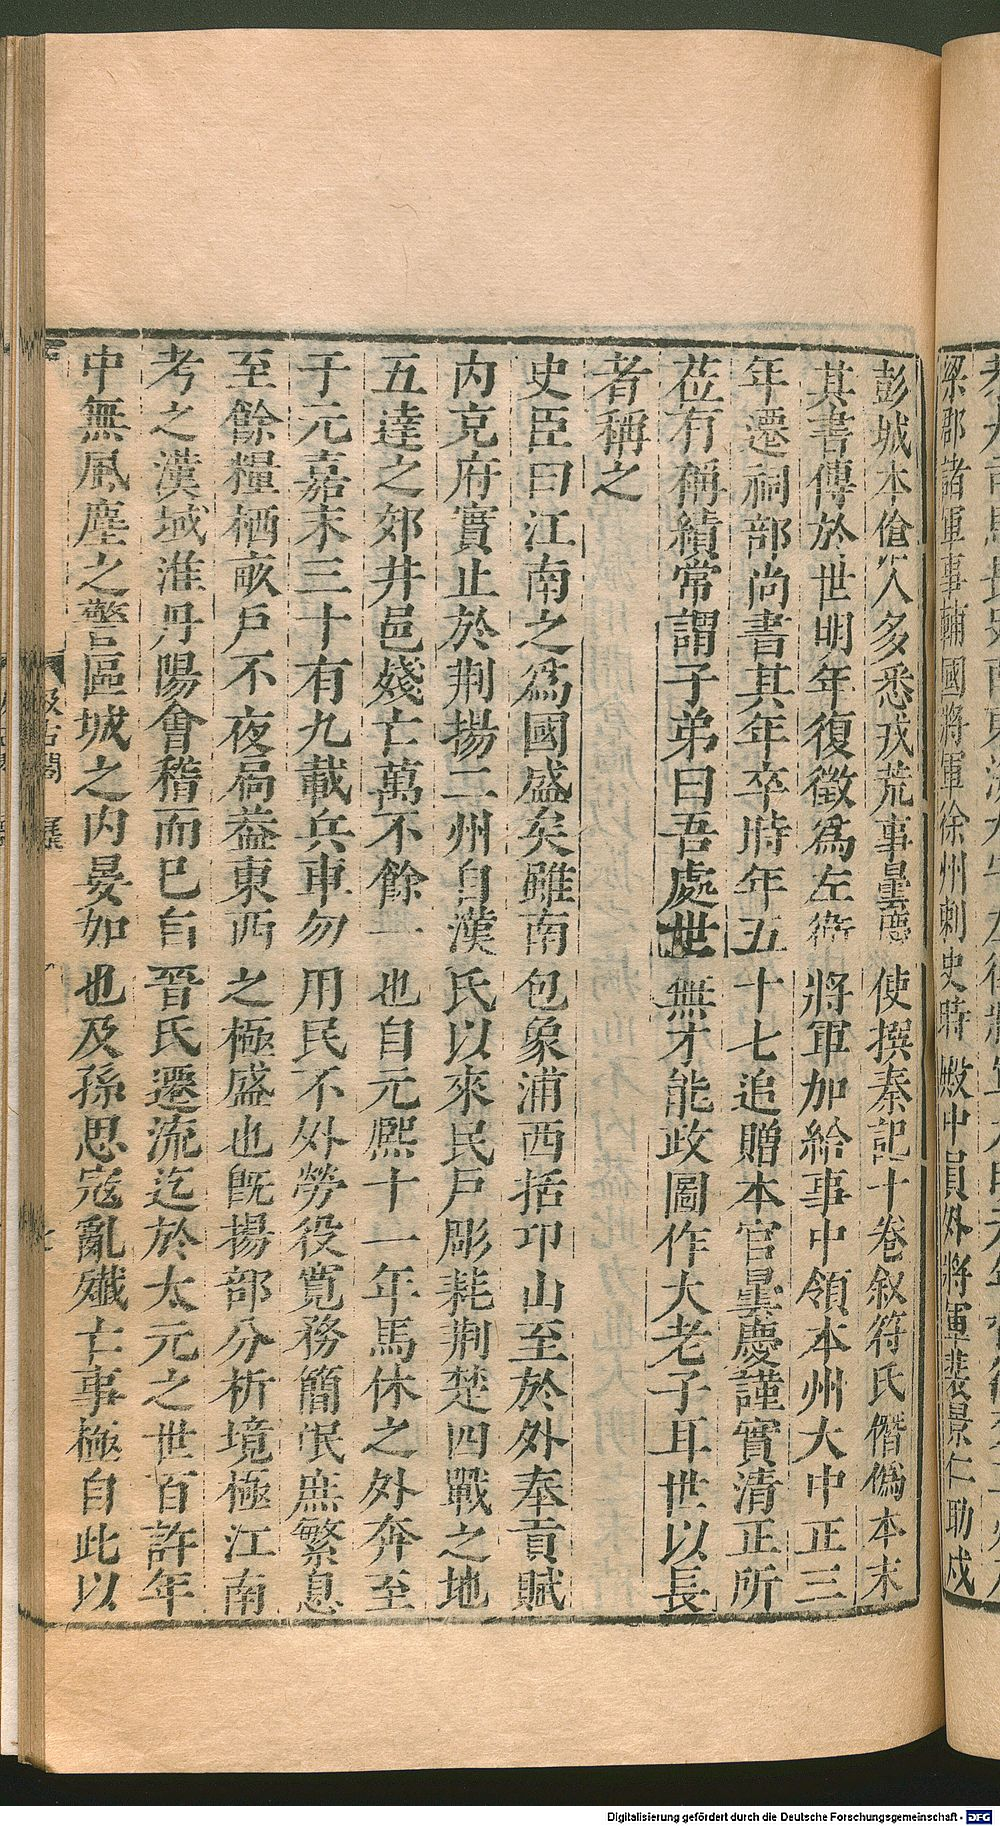 梁郡諸軍事輔國將軍徐州刺史時殿中員外將軍裴景仁助戍
彭城本傖人多悉戎荒事曇慶使撰秦記十卷叙符氏僭僞本末
其書傳於世明年復徵爲左衛將軍加給事中領本州大中正三
年遷祠部尚書其年卒時年五十七追贈本官曇慶謹實清正所
莅有稱績常謂子弟曰吾處世無才能政圖作大老子耳世以長
者稱之
史臣曰江南之爲國盛矣雖南包象浦西括邛山至於外奉貢賦
内克府實止於荆揚二州自漢氏以來民户彫耗荆楚四戰之地
五達之郊井邑殘亡萬不餘一也自元熙十一年馬休之外奔至
于元嘉末三十有九載兵車勿用民不外勞役寛務簡氓庶繁息
至餘糧栖畝戸不夜扃葢東西之極盛也旣揚部分析境極江南
考之漢域淮丹陽會稽而已自晉氏遷流迄於太元之世百許年
中無風塵之警區域之内晏如也及孫恩寇亂殲亡事極自此以
Digitalisierung gefördert durch die Deutsche Forschungsgemeinschaft - DFG